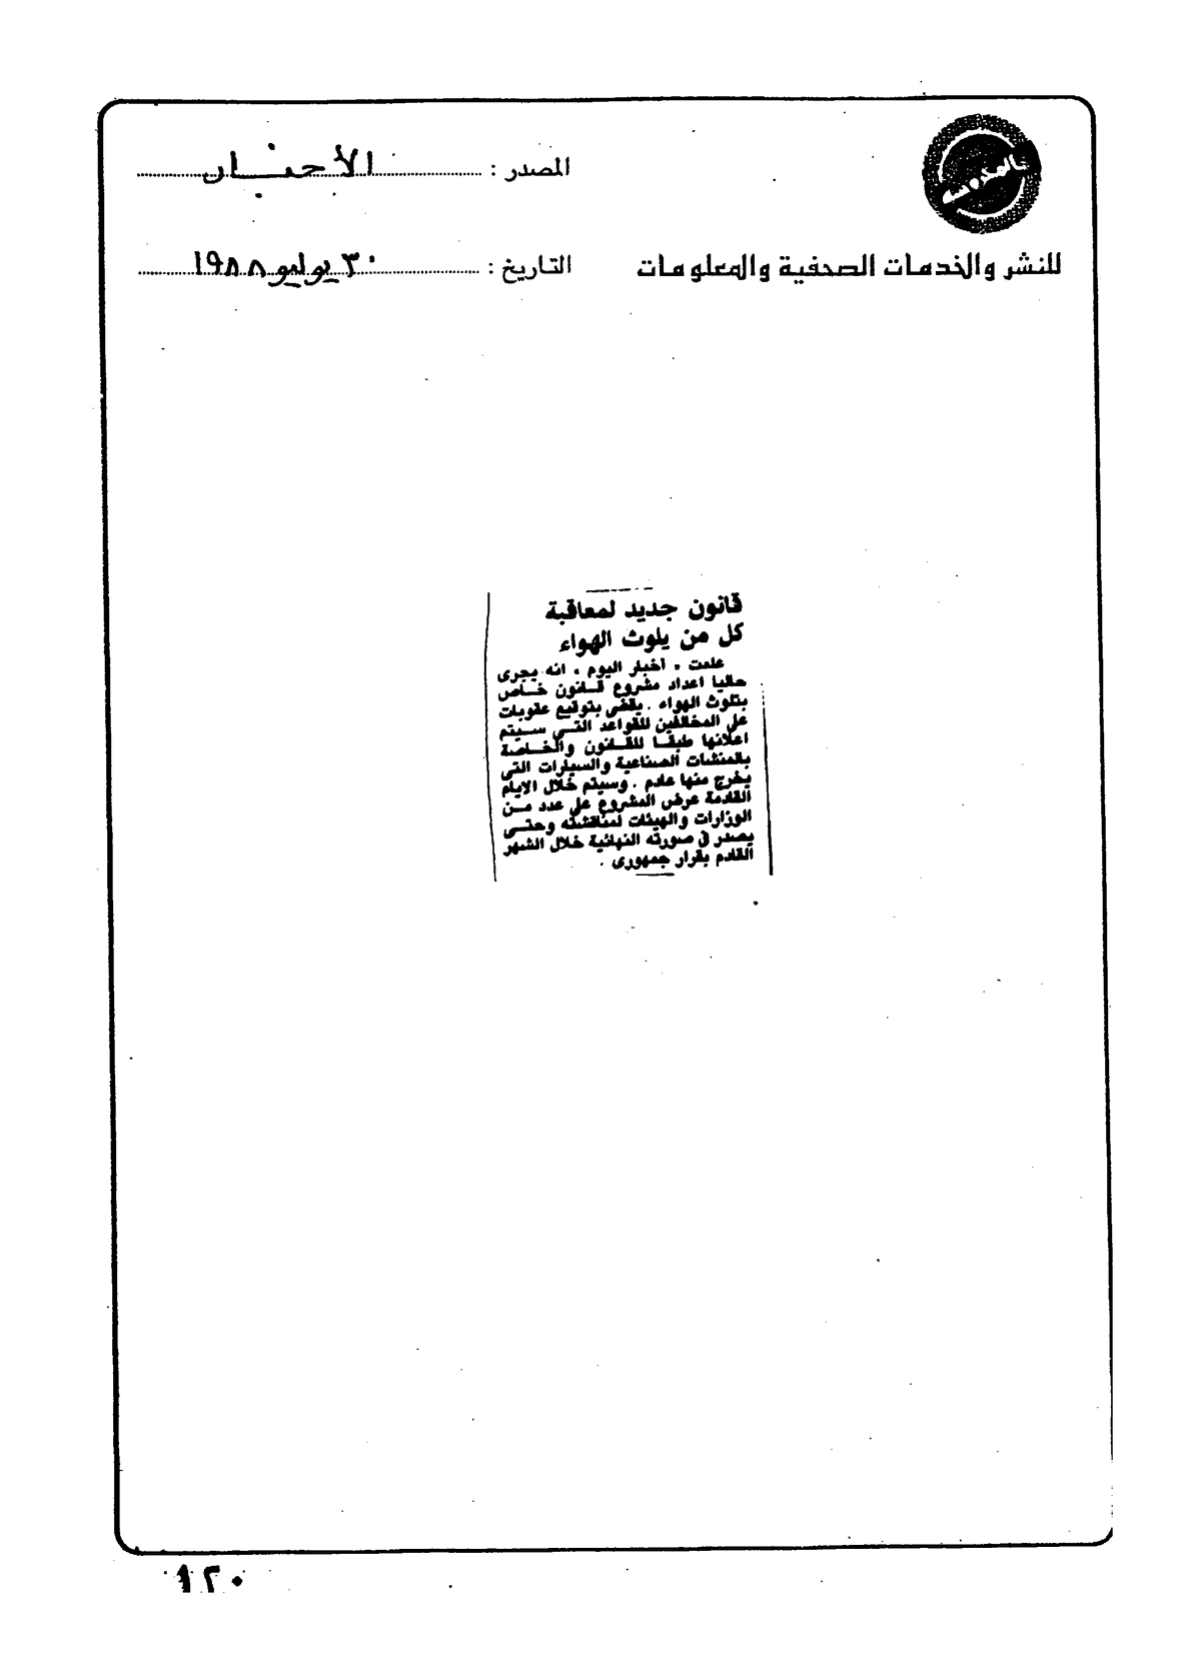 المصدر : الأخبار
للنشر والخدمات الصحفية والمعلومات
التاريخ : ٣٠ يوليو ١٩٨٨
قانون جديد لمعاقبة
كل من يلوث الهواء
علمت « أخبار اليوم » انه يجرى
حاليا اعداد مشروع قانون خاص
بتلوث الهواء . يقضى بتوقيع عقوبات
على المخالفين للقواعد التى سيتم
اعلانها طبقا للقانون والخاصة
بالمنشات الصناعية والسيارات التى
يخرج منها عادم . وسيتم خلال الايام
القادمة عرض المشروع على عدد من
الوزارات والهيئات لمناقشته وحتى
يصدر فى صورته النهائية خلال الشهر
القادم بقرار جمهورى .
١٢٠